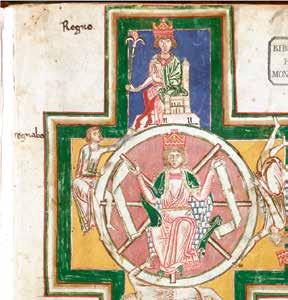 Regno.
regnabo
BIB
MON